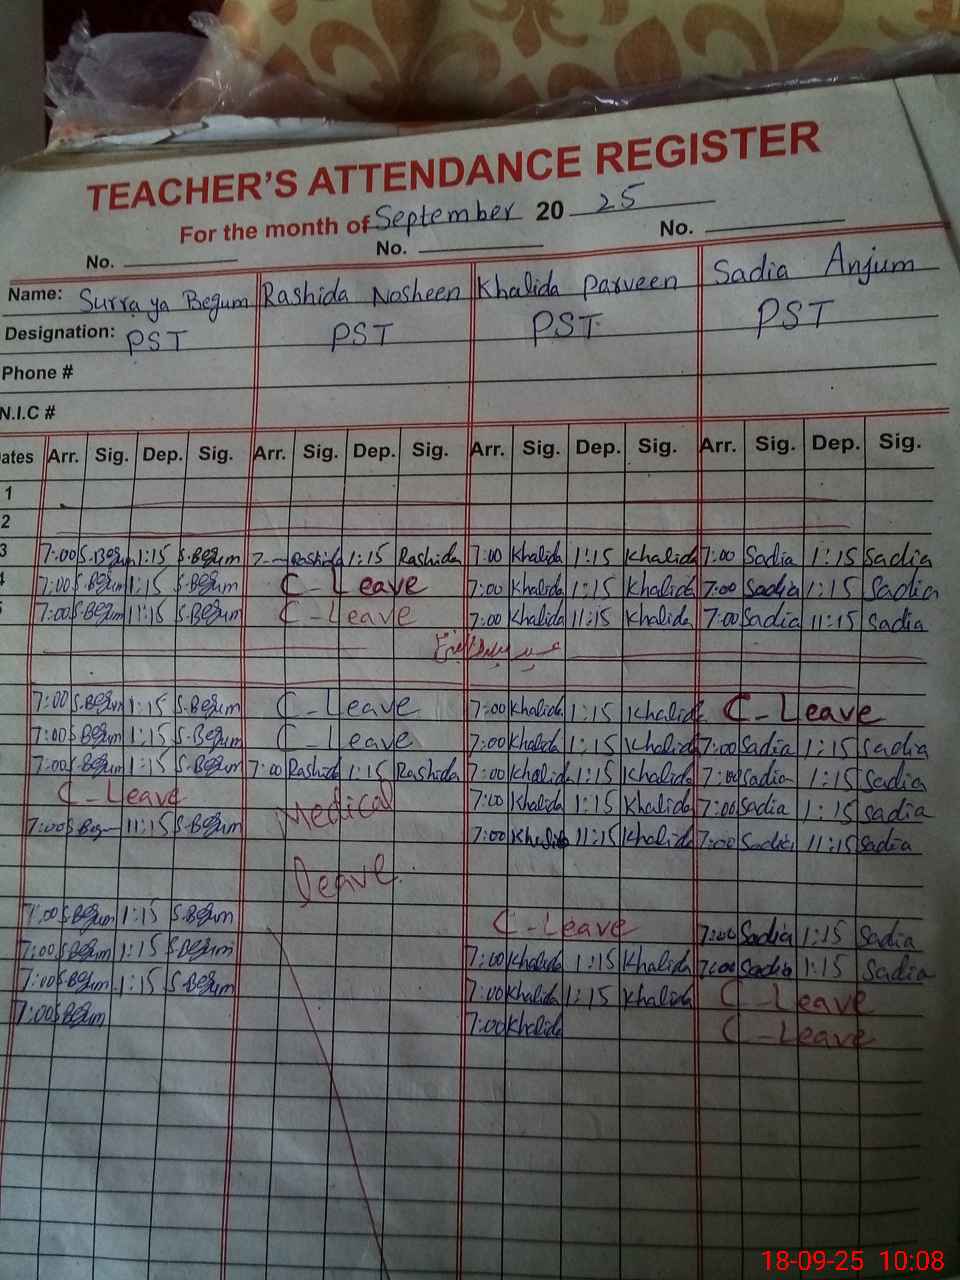 TEACHER'S ATTENDANCE REGISTER
For the month of September 20 25
No. No. No.
Name: Surraya Begum Rashida Nosheen Khalida Parveen Sadia Anjum
Designation: PST PST PST PST
Phone #
N.I.C #
ates Arr. Sig. Dep. Sig. Arr. Sig. Dep. Sig. Arr. Sig. Dep. Sig. Arr. Sig. Dep. Sig.
1
2
3 7:00 S.Begum 1:15 S.Begum 7- Rashida 1:15 Rashida 7:00 Khalida 1:15 Khalida 7:00 Sadia 1:15 Sadia
7:00 S.Begum 1:15 S.Begum C-Leave 7:00 Khalida 1:15 Khalida 7:00 Sadia 1:15 Sadia
7:00 S.Begum 11:15 S.Begum C-Leave 7:00 Khalida 11:15 Khalida 7:00 Sadia 11:15 Sadia
7:00 S.Begum 1:15 S.Begum C-Leave 7:00 Khalida 1:15 Khalida C-Leave
7:00 S.Begum 1:15 S.Begum C-Leave 7:00 Khalida 1:15 Khalida 7:00 Sadia 1:15 Sadia
7:00 S.Begum 1:15 S.Begum 7:00 Rashida 1:15 Rashida 7:00 Khalida 1:15 Khalida 7:00 Sadia 1:15 Sadia
C-Leave Medical 7:00 Khalida 1:15 Khalida 7:00 Sadia 1:15 Sadia
7:00 S.Begum 11:15 S.Begum 7:00 Khalida 11:15 Khalida 7:00 Sadia 11:15 Sadia
leave
7:00 S.Begum 1:15 S.Begum C-Leave 7:00 Sadia 1:15 Sadia
7:00 S.Begum 1:15 S.Begum 7:00 Khalida 1:15 Khalida 7:00 Sadia 1:15 Sadia
7:00 S.Begum 1:15 S.Begum 7:00 Khalida 1:15 Khalida C-Leave
7:00 S.Begum 7:00 Khalida C-Leave
18-09-25 10:08